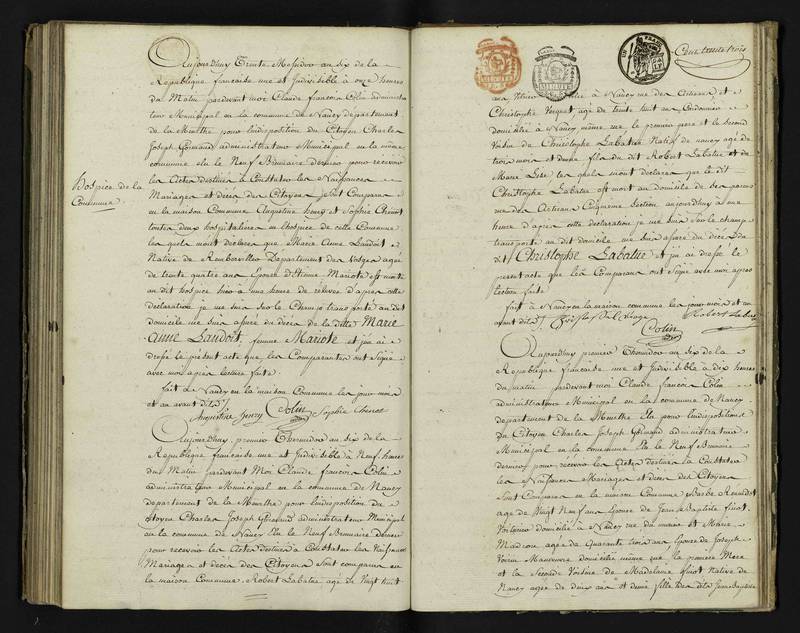 Aujourdhuy Trente Messidor an six de la
République francaise une et Indivisible à onze heures
du Matin pardevant moi Claude francois Colin administra
teur Municipal en la commune de Nancy département
de la Meurthe pour lindisposition du Citoyen Charles
Joseph Gormand administrateur Municipal en la même
commune élu le Neuf Brumaire dernier pour recevoir
les Actes destinés à Constater les Naissances
Mariages et décès des Citoyens sont Comparus
en la maison Commune Augustine henry et Sophie Chenot
toutes deux hospitalières en lhospice de cette Commune
les quels mont declaré que Marie Anne Landoit
Native de Département des Vosges agée
de trente quatre ans Epouse d'Etienne Mariote est morte
au dit hospice hier à une heure de relevée d'après cette
declaration je me suis sur le Champ transporté au dit
domicile me suis assuré du décès de la ditte Marie
anne Landoit, femme Mariote et j'en ai
dressé le présent acte que les Comparantes ont Signé
avec moi après lecture faite.
fait à Nancy en la maison Commune les jour mois
et an avant dits
Augustine henry Colin Sophie Chenot
hospice de la
Commune.
Aujourdhuy premier Thermidor an six de la
République francaise une et Indivisible à Neuf heures
du Matin pardevant Moi Claude francois Colin
administrateur Municipal en la commune de Nancy
département de la Meurthe pour lindisposition du
citoyen Charles Joseph Gormand administrateur Municipal
en la commune de Nancy Elu le Neuf Brumaire dernier
pour recevoir les Actes destinés à Constater les Naissances
Mariages et décès des Citoyens sont comparus en
la maison Commune Robert Labatue agé de Vingt huit
Cent trente trois
ans à Nancy rue des Artisans et
Christophe agé de trente huit ans Cordonnier
domicilié à Nancy même rue le premier pere et le Second
Voisin de Christophe Labatue Natif de nancy agé de
trois mois et demie fils du dit Robert Labatue et de
Marie les quels mont declaré que le dit
Christophe Labatue est mort au domicile de ses pere
rue des Artisans Cinquieme Section aujourdhuy à une
heure d'après cette declaration je me suis sur le champ
transporté au dit domicile me suis assuré du décès du
dit Christophe Labatue et j'en ai dressé le
present acte que les Comparans ont Signé avec moi apres
lecture faite.
fait à Nancy en la maison commune les jour mois et an
avant dits
Robert Labatue
Colin
Aujourdhuy premier Thermidor an six de la
République francaise une et Indivisible à dix heures
du matin pardevant moi Claude francois Colin
administrateur Municipal en la commune de Nancy
département de la Meurthe Elu pour lindisposition
du Citoyen Charles Joseph Gormand administrateur
Municipal en la commune Elu le Neuf Brumaire
dernier pour recevoir les Actes destinés à Constater
les Naissances Mariages et décès des Citoyens
Sont Comparus en la maison Commune Barbe
agée de Vingt Neuf ans Epouse de Jean Baptiste finot
domicilié à Nancy rue du et Marie
agée de Quarante trois ans Epouse de Joseph
Manoeuvre domicilié même rue la premiere Mere
et la Seconde Voisine de Madelaine finot Native de
Nancy agée de deux ans et demie fille du dit Jean Baptiste